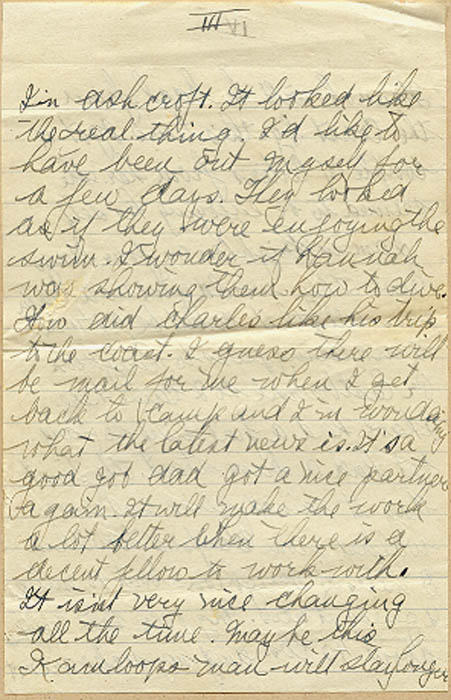 III
in Ashcroft. It looked like
the real thing. I'd like to
have been out myself for
a few days. They looked
as if they were enjoying the
swim. I wonder if Hannah
was showing them how to dive.
How did Charles like his trip
to the coast. I guess there will
be mail for me when I get
back to Camp and I'm wondering
what the latest news is. It's a
good job dad got a nice partner
again. It will make the work
a lot better when there is a
decent fellow to work with.
It isn't very nice changing
all the time. Maybe this
Kamloops man will stay longer